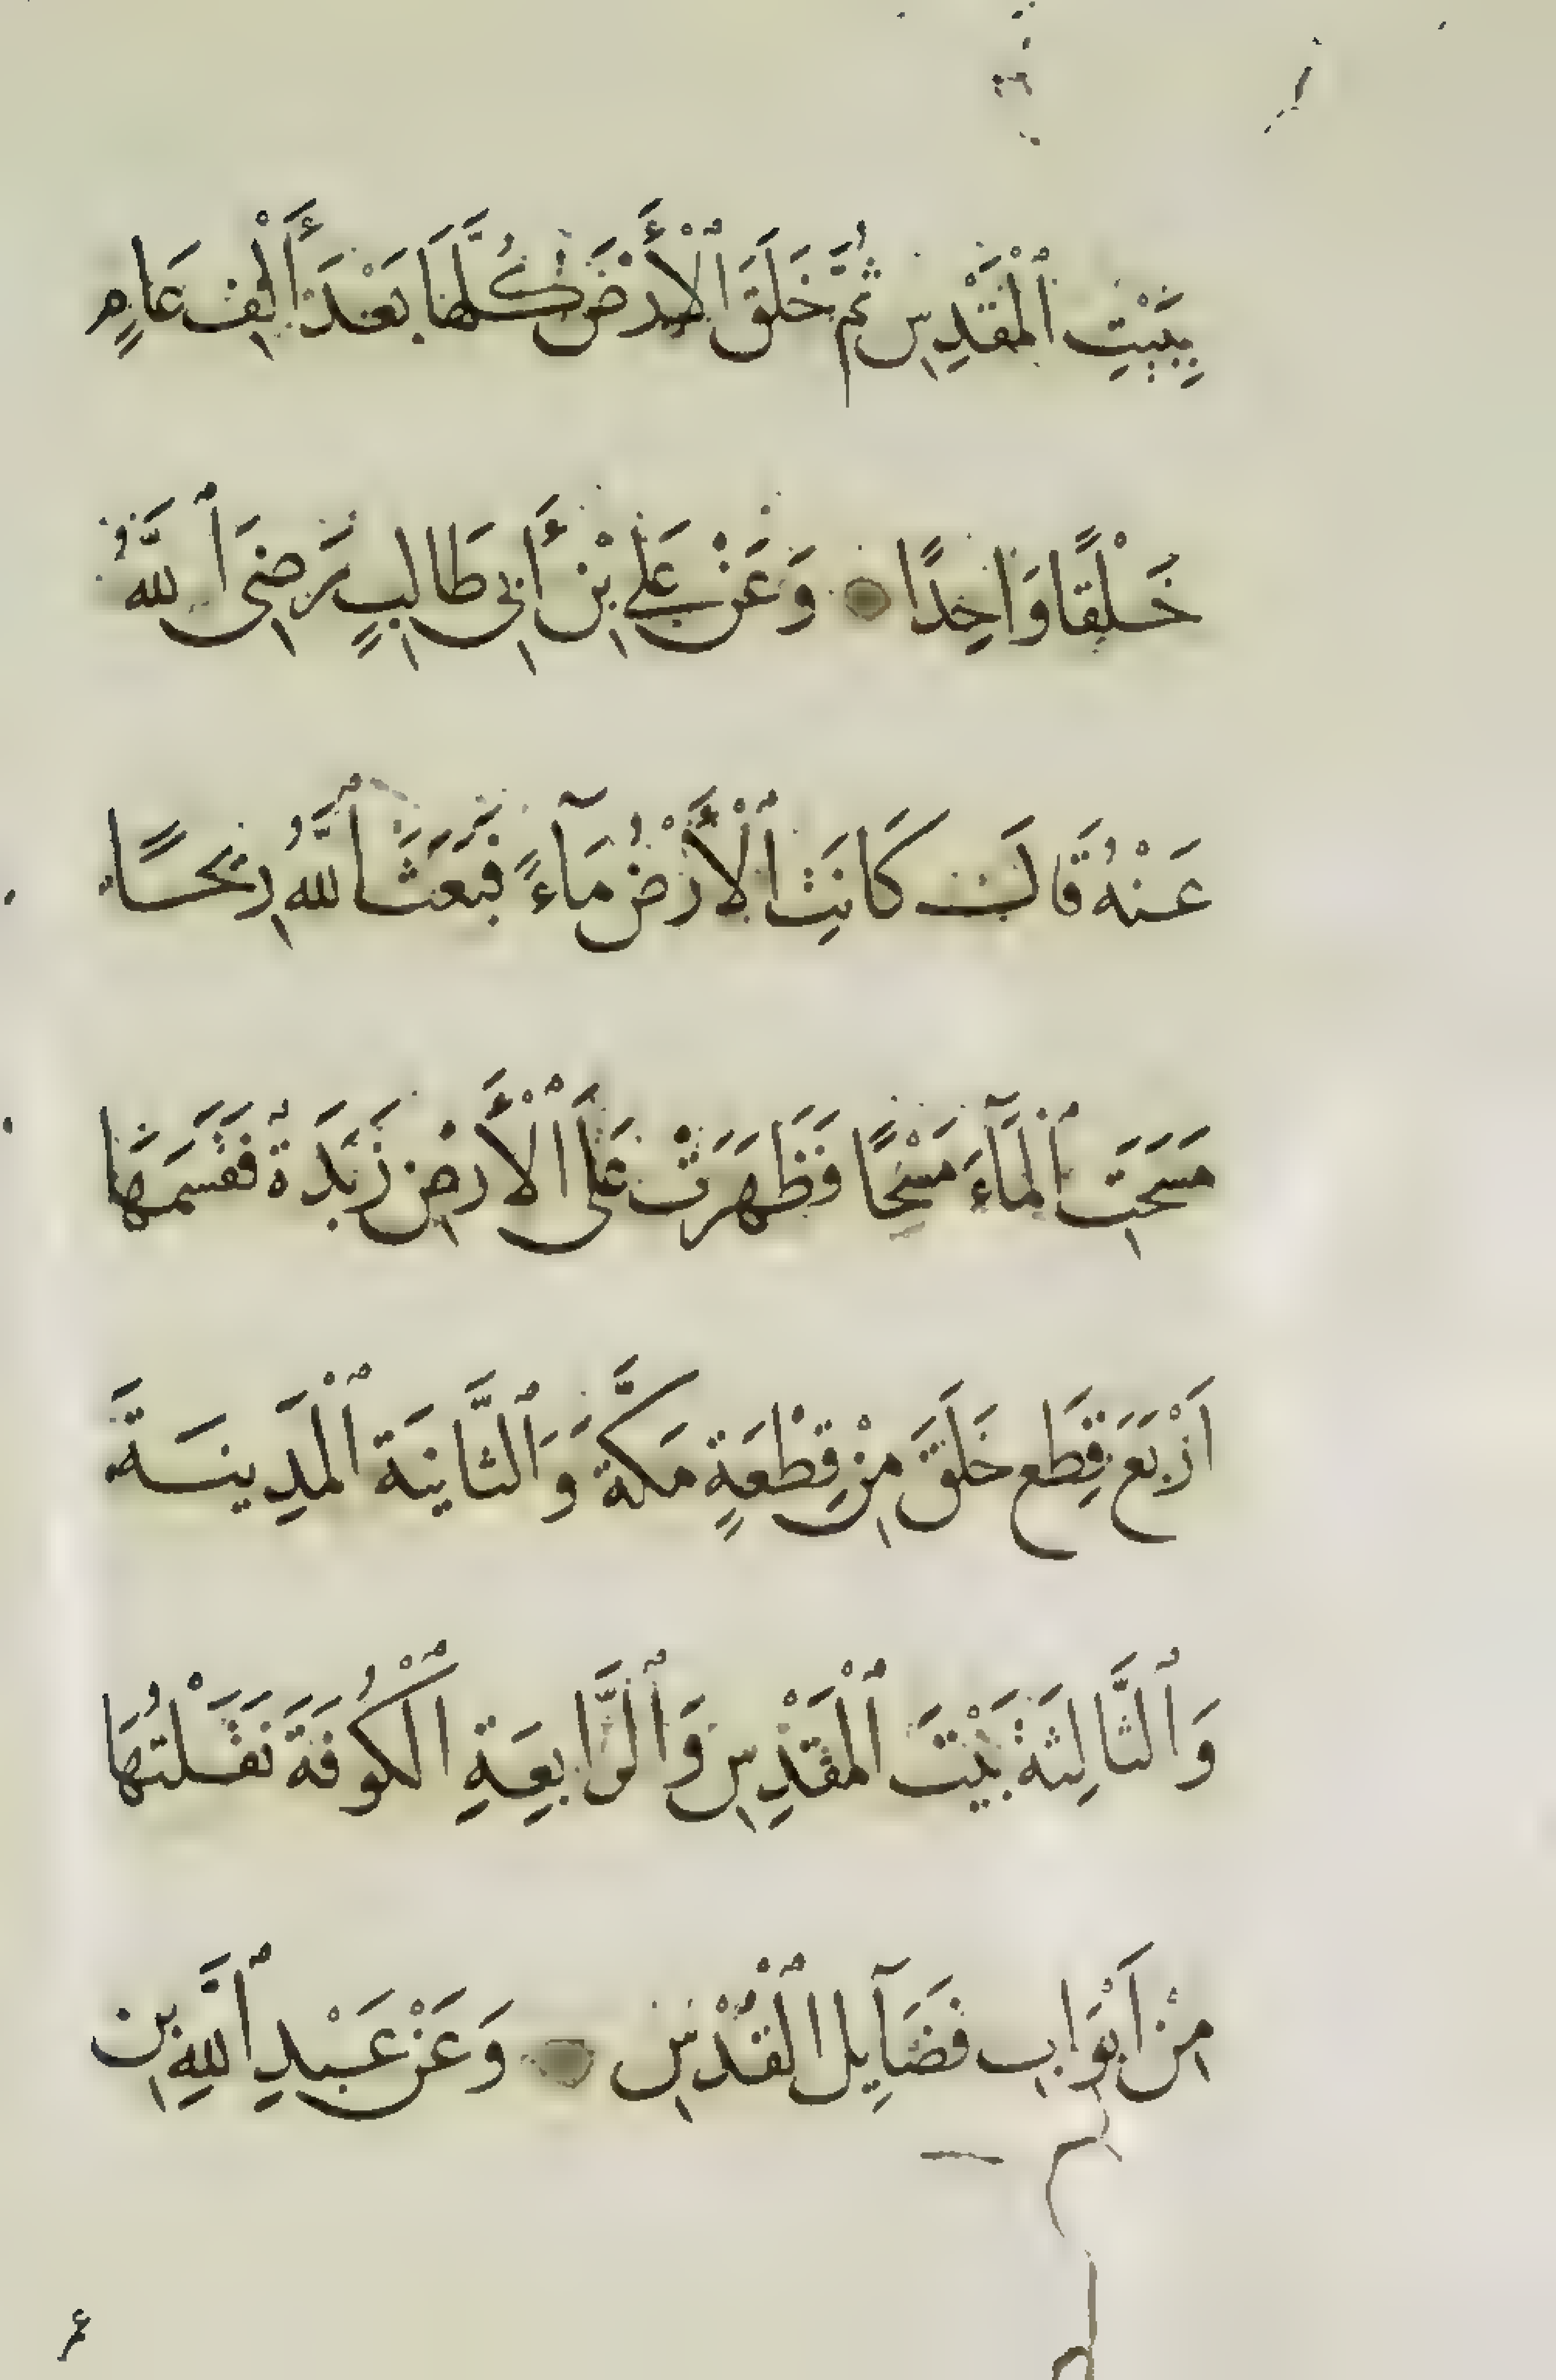 بِبَيْتِ ٱلْمَقْدِسِ ثُمَّ خَلَقَ ٱلْأَرْضَ كُلَّهَا بَعْدَ أَلْفِ عَامٍ
خَلْقًا وَاحِدًا وَعَنْ عَلِي بْنِ أَبِي طَالِبٍ رَضِىَ ٱللَّهُ
عَنْهُ قَالَ كَانَتِ ٱلْأَرْضُ مَآءً فَبَعَثَ ٱللَّهُ رِيحًا
مَسَحَتِ ٱلْمَآءَ مَسْحًا فَظَهَرَتْ عَلَى ٱلْأَرْضِ زَبَدَة فَقَسَمَهَا
اَرْبَعَ قِطَع خَلَقَ مِنْ قِطْعَةٍ مَكَّةَ وَٱلثَّانِيَة ٱلْمَدِينَةَ
وَٱلثَّالِثَةَ بَيْتَ ٱلْمَقْدِسِ وَٱلرَّابِعَةِ ٱلْكُوفَةَ نَقَلْتُهَا
مِنْ اَبْوَابِ فَضَآيِلِ ٱلْقُدْسِ وَعَنْ عَبْدِ ٱللَّهِ بنِ
عمر